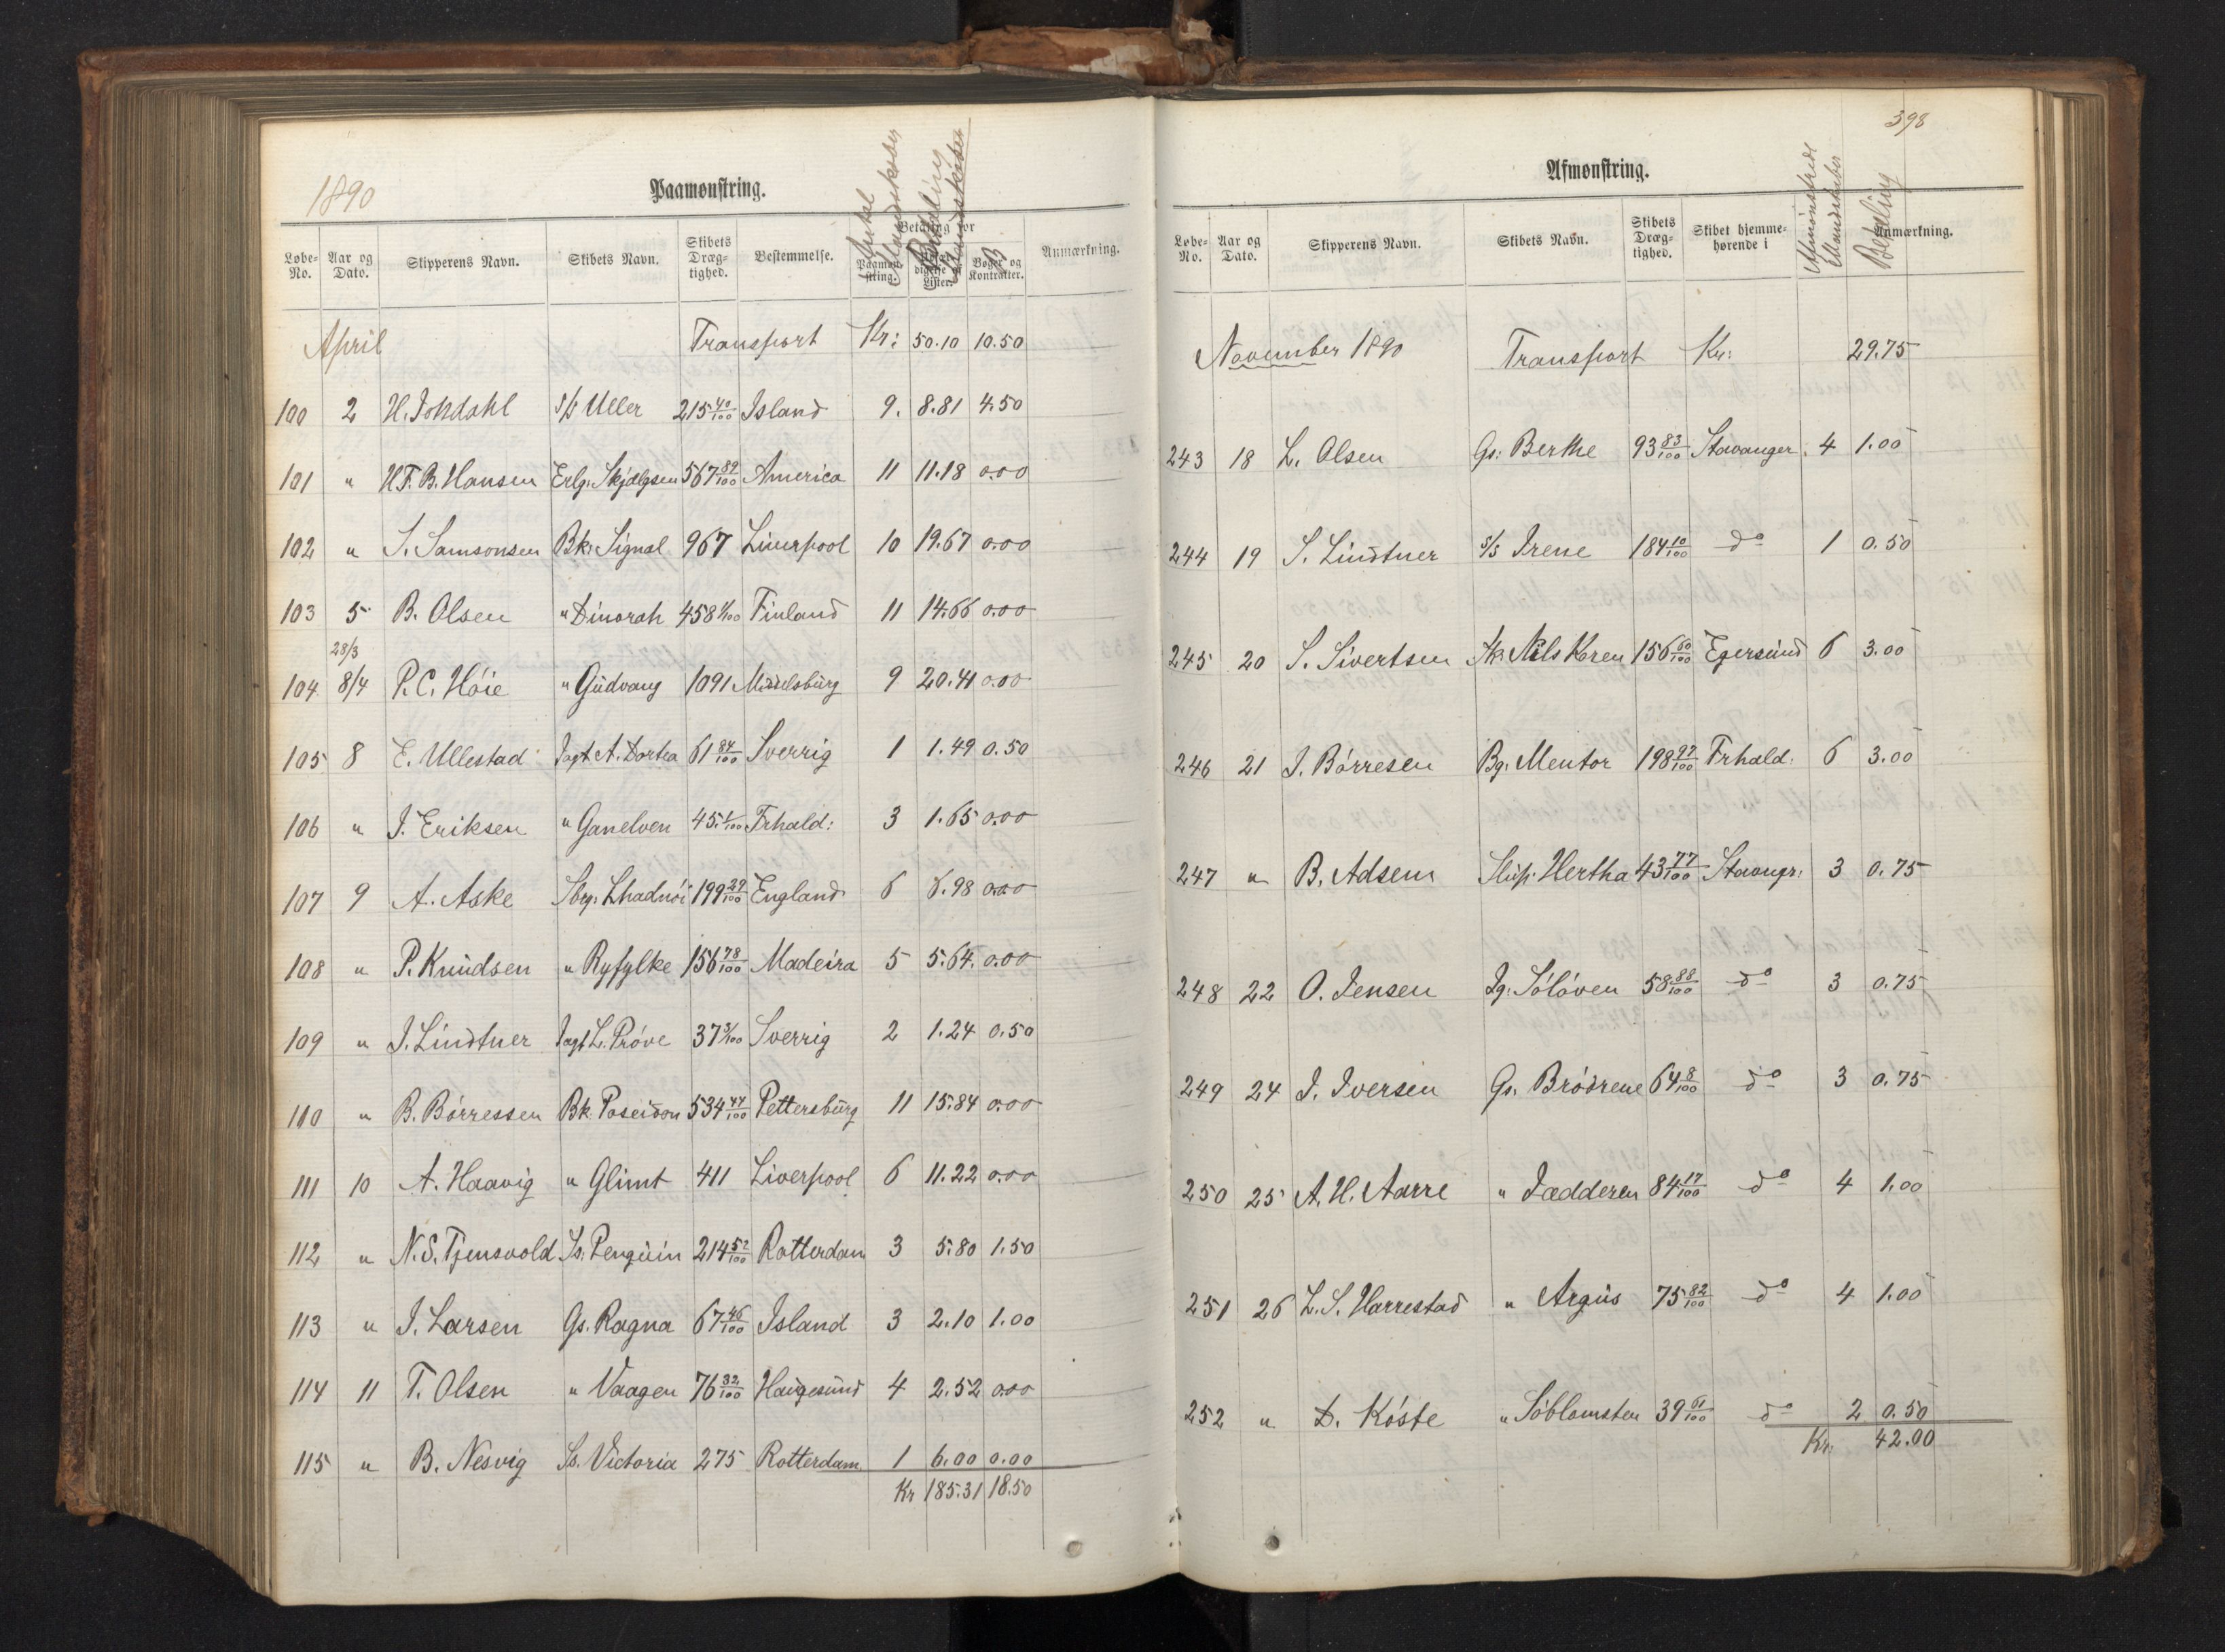 1890
Paamonstring.
Løbe-No. Aar og Dato. Skipperens Navn. Skibets Navn. Skibets Dræg-tighed. Bestemmelse. Paamon-string. Betaling for Lister. Bøger og Kontrakter. Anmærkning.
Antal Mandskaber Betaling
April Transport Kr: 50.10 10.50
100 2 H. Johdahl s/s Uller 215 40/100 Island 9. 8.81 4.50
101 " H.F.B. Hansen Erlg. Skjalgsen 567 89/100 America 11 11.18 0.00
102 " S. Samsonsen Bk: Signal 967 Liverpool 10 19.67 0.00
103 5 B. Olsen " Dinorah 458 1/100 Finland 11 14.66 0.00
104 28/3 8/4 P.C. Höie " Gudvang 1091 Middelsburg 9 20.41 0.00
105 8 E. Ullestad Jagt. A. Dortea 61 84/100 Sverrig 1 1.49 0.50
106 " J. Eriksen " Ganelven 45 1/100 Frhald: 3 1.65 0.00
107 9 A. Aske Sbrg. Lhadnöi 199 29/100 England 6 6.98 0.00
108 " P. Knudsen " Ryfylke 156 78/100 Madeira 5 5.64. 0.00
109 " J. Lindtner Jagt L. Pröve 37 3/100 Sverrig 2 1.24 0.50
110 " B. Börressen Bk. Poseidon 534 44/100 Pettersburg 11 15.84 0.00
111 10 A. Haavig " Glimt 411 Liverpool 6 11.22 0.00
112 " N.S. Tjensvold Ss. Penguin 214 52/100 Rotterdam 3 5.80 1.50
113 " J. Larsen Gs. Ragna 67 46/100 Island 3 2.10 1.00
114 11 T. Olsen " Vaagen 76 32/100 Haugesund 4 2.52 0.00
115 " B. Nesvig Ss. Victoria 275 Rotterdam. 1 6.00 0.00
Kr 185.31 18.50
398
Afmonstring.
Løbe-No. Aar og Dato. Skipperens Navn. Skibets Navn. Skibets Dræg-tighed. Skibet hjemme-hørende i Afmönstrede Mandskaber Betaling Anmærkning.
November 1890 Transport Kr: 29.75
243 18 L. Olsen Gs: Berthe 93 83/100 Stavanger. 4 1.00
244 19 S. Lindtner s/s Irene 184 10/100 do 1 0.50
245 20 S. Sivertsen Sk. Nils Koren 156 60/100 Egersund 6 3.00
246 21 J. Börresen Bg. Mentor 198 97/100 Frhald. 6 3.00
247 " B. Adsem Slup. Hertha 43 77/100 Stavangr: 3 0.75
248 22 O. Jensen Jg. Sölöven 58 88/100 do 3 0.75
249 24 J. Iversen Gs. Brödrene 64 8/100 do 3 0.75
250 25 A.H. Aarre " Jædderen 84 17/100 do 4 1.00
251 26 L.S. Harrestad " Argus 75 82/100 do 4 1.00
252 " D. Köste " Söblomsten 39 61/100 do 2 0.50
Kr: 42.00